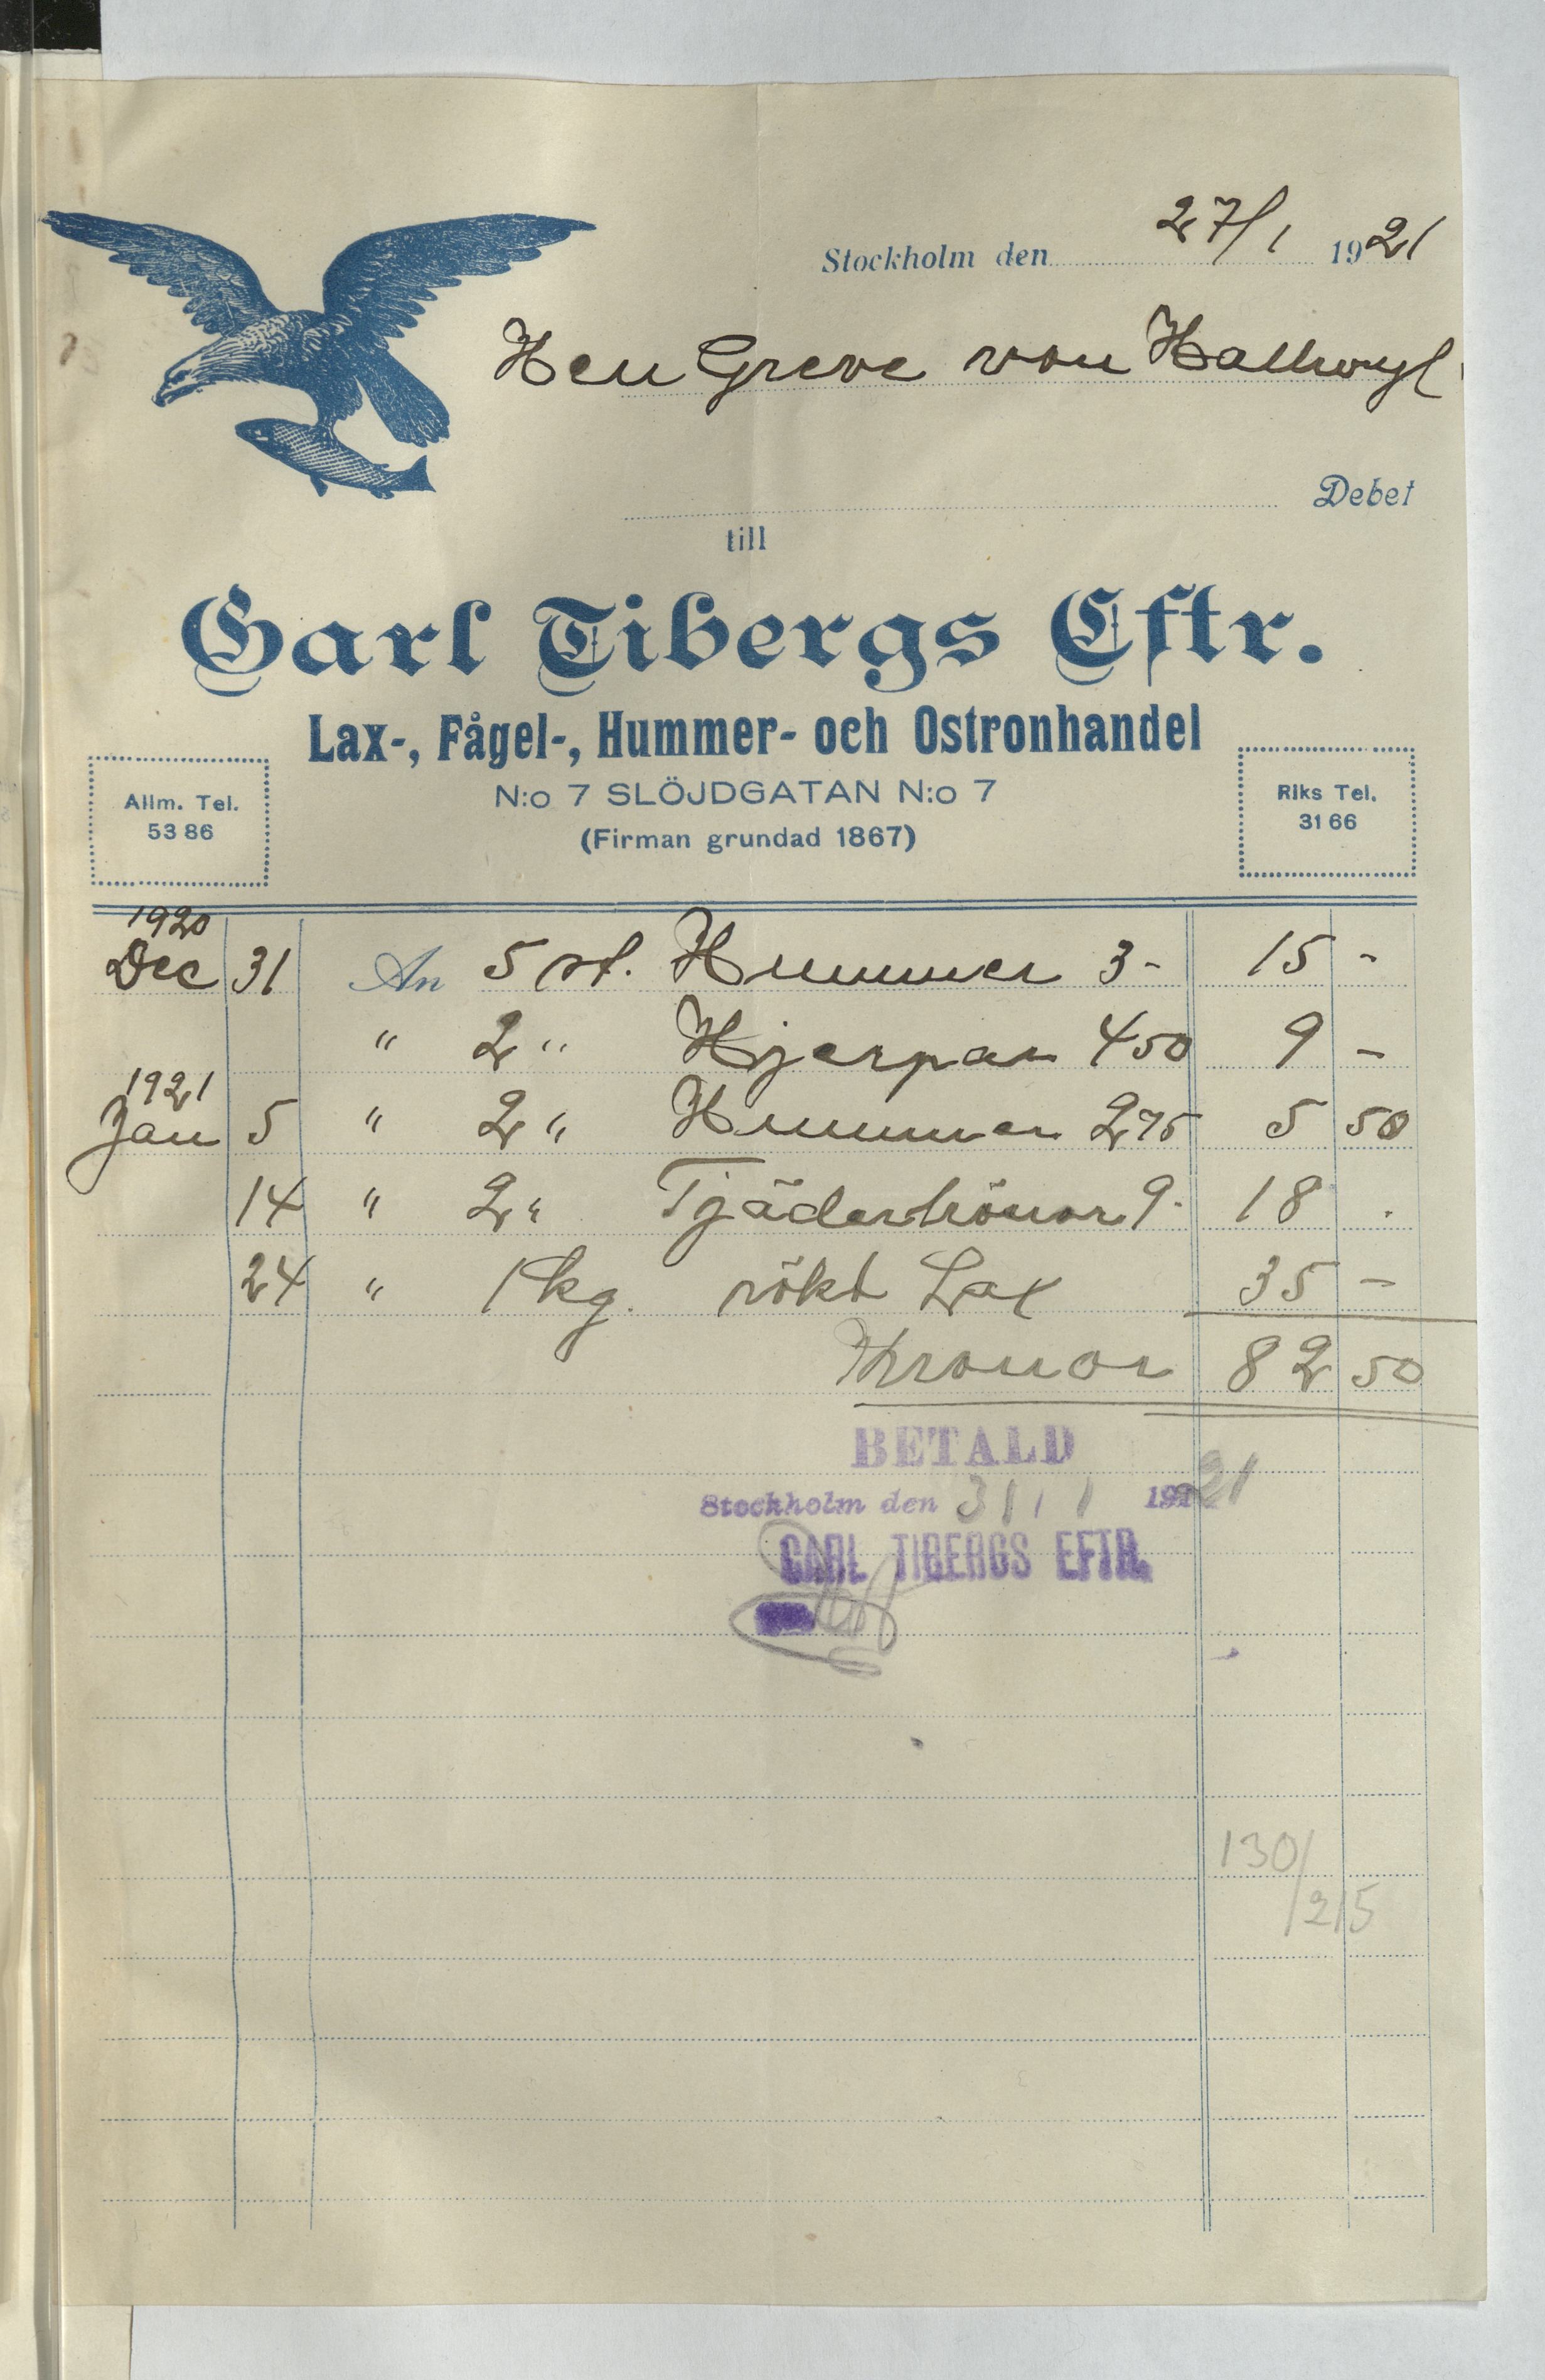 Stockholm den 27/1 1921
Herr Greve von Hallwyl
Debet
till
Carl Tibergs Eftr.
Lax-, Fågel-, Hummer- och Ostronhandel
N:o 7 SLÖJDGATAN N:o 7
(Firman grundad 1867)
Allm. Tel.
53 86
Riks Tel.
31 66
1920
Dec 31 An 5 st. Hummer 3- 15 -
" 2 " Hjerpar 450 9 -
1921
Jan 5 " 2 " Hummer 275 5 50
14 " 2 " Tjäderhönor 9- 18 .
24 " 1 kg. rökt Lax 35 -
Kronor 82 50
BETALD
Stockholm den 31/1 1921
CARL TIBERGS EFTR.
130/
215